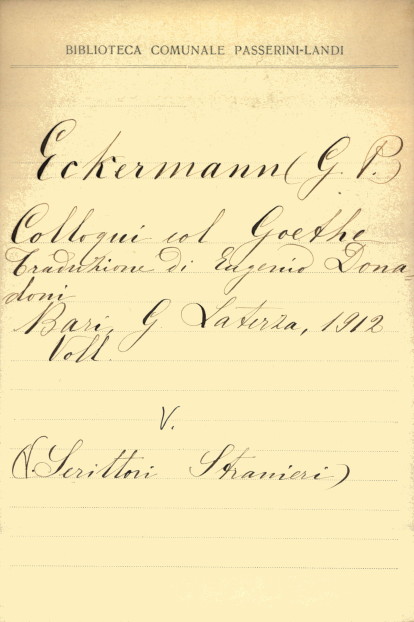 BIBLIOTECA COMUNALE PASSERINI-LANDI
Eckermann (G. P.)
Colloqui col Goethe
Traduzione di Eugenio Dona=
doni
Bari, G Laterza, 1912
Voll
V.
(V. Scrittori Stranieri)